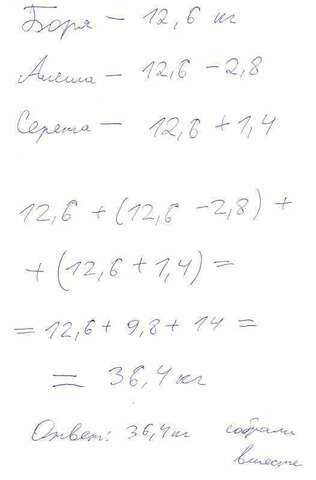 Боря – 12,6 кг
Алеша – 12,6 – 2,8
Сережа – 12,6 + 1,4
12,6 + (12,6 – 2,8) +
+ (12,6 + 1,4) =
= 12,6 + 9,8 + 14 =
= 36,4 кг
Ответ: 36,4 кг собрали
вместе